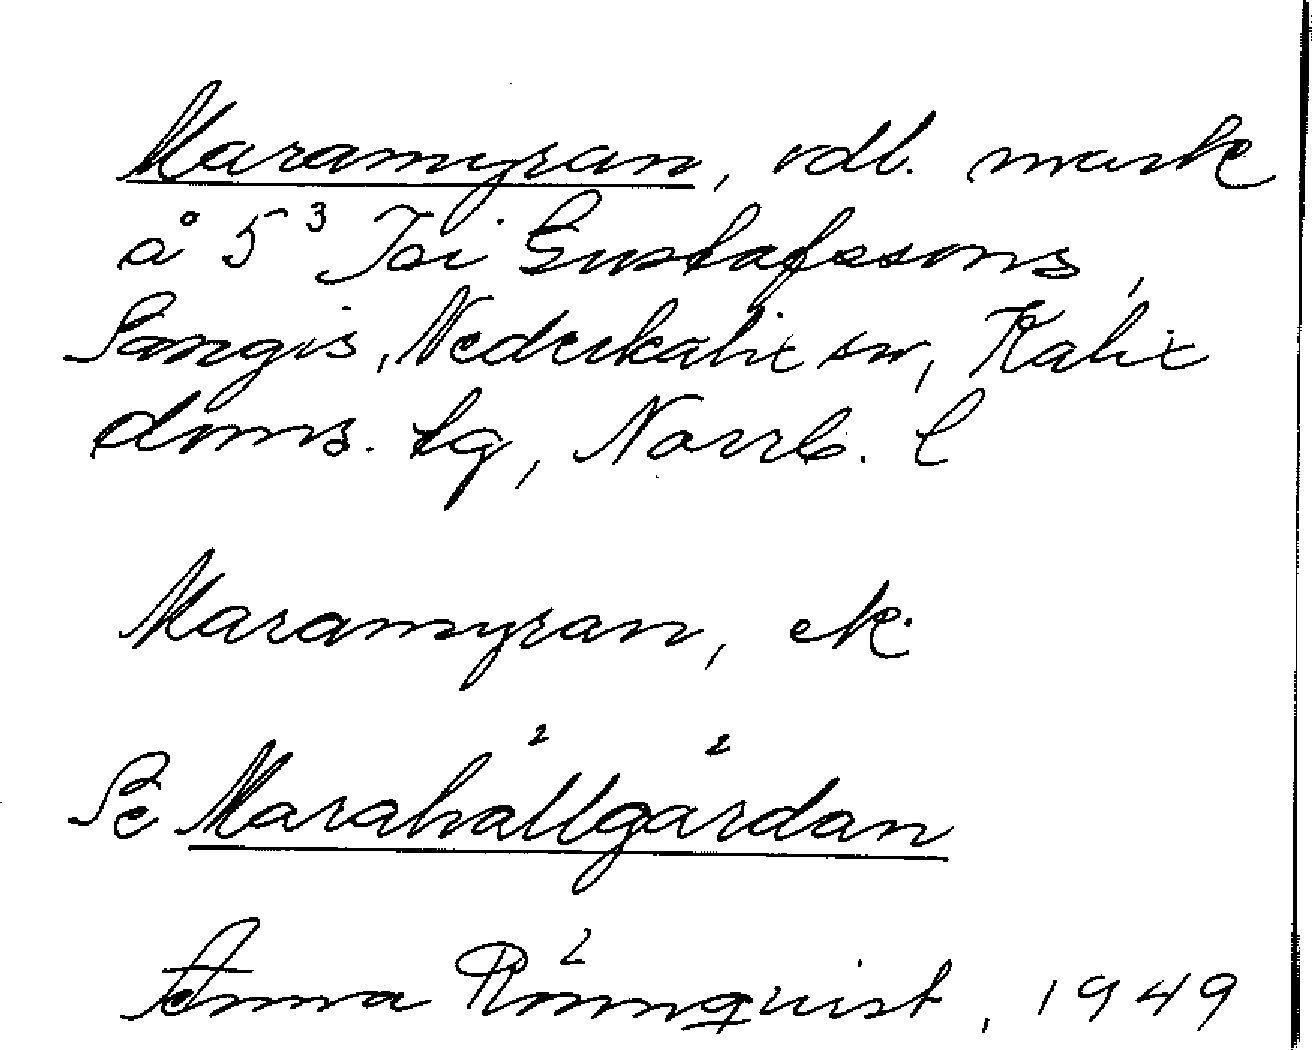 Maramyran, odl. mark
å 5³ Joi Gustafssons,
Sangis, Nederkalix sn, Kalix
doms. tg, Norrb. l
Maramyran, ek.
Se Marahällgärdan
Anna Rönnquist, 1949